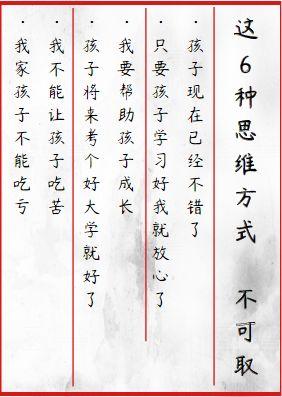 这6种思维方式 不可取
·孩子现在已经不错了
·只要孩子学习好我就放心了
·我要帮助孩子成长
·孩子将来考个好大学就好了
·我不能让孩子吃苦
·我家孩子不能吃亏